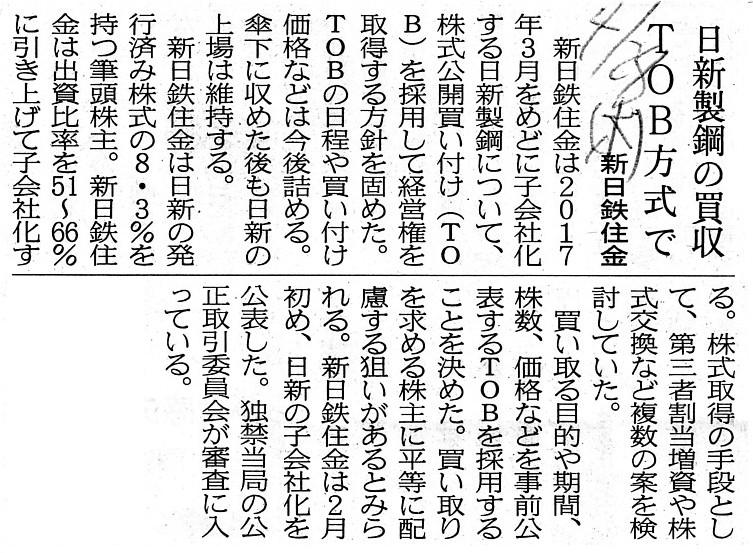 日新製鋼の買収
TOB方式で
新日鉄住金
　新日鉄住金は2017
年3月をめどに子会社化
する日新製鋼について、
株式公開買い付け(TO
B)を採用して経営権を
取得する方針を固めた。
TOBの日程や買い付け
価格などは今後詰める。
傘下に収めた後も日新の
上場は維持する。
　新日鉄住金は日新の発
行済み株式の8・3%を
持つ筆頭株主。新日鉄住
金は出資比率を51~66%
に引き上げて子会社化す
る。株式取得の手段とし
て、第三者割当増資や株
式交換など複数の案を検
討していた。
　買い取る目的や期間、
株数、価格などを事前公
表するTOBを採用する
ことを決めた。買い取り
を求める株主に平等に配
慮する狙いがあるとみら
れる。新日鉄住金は2月
初め、日新の子会社化を
公表した。独禁当局の公
正取引委員会が審査に入
っている。